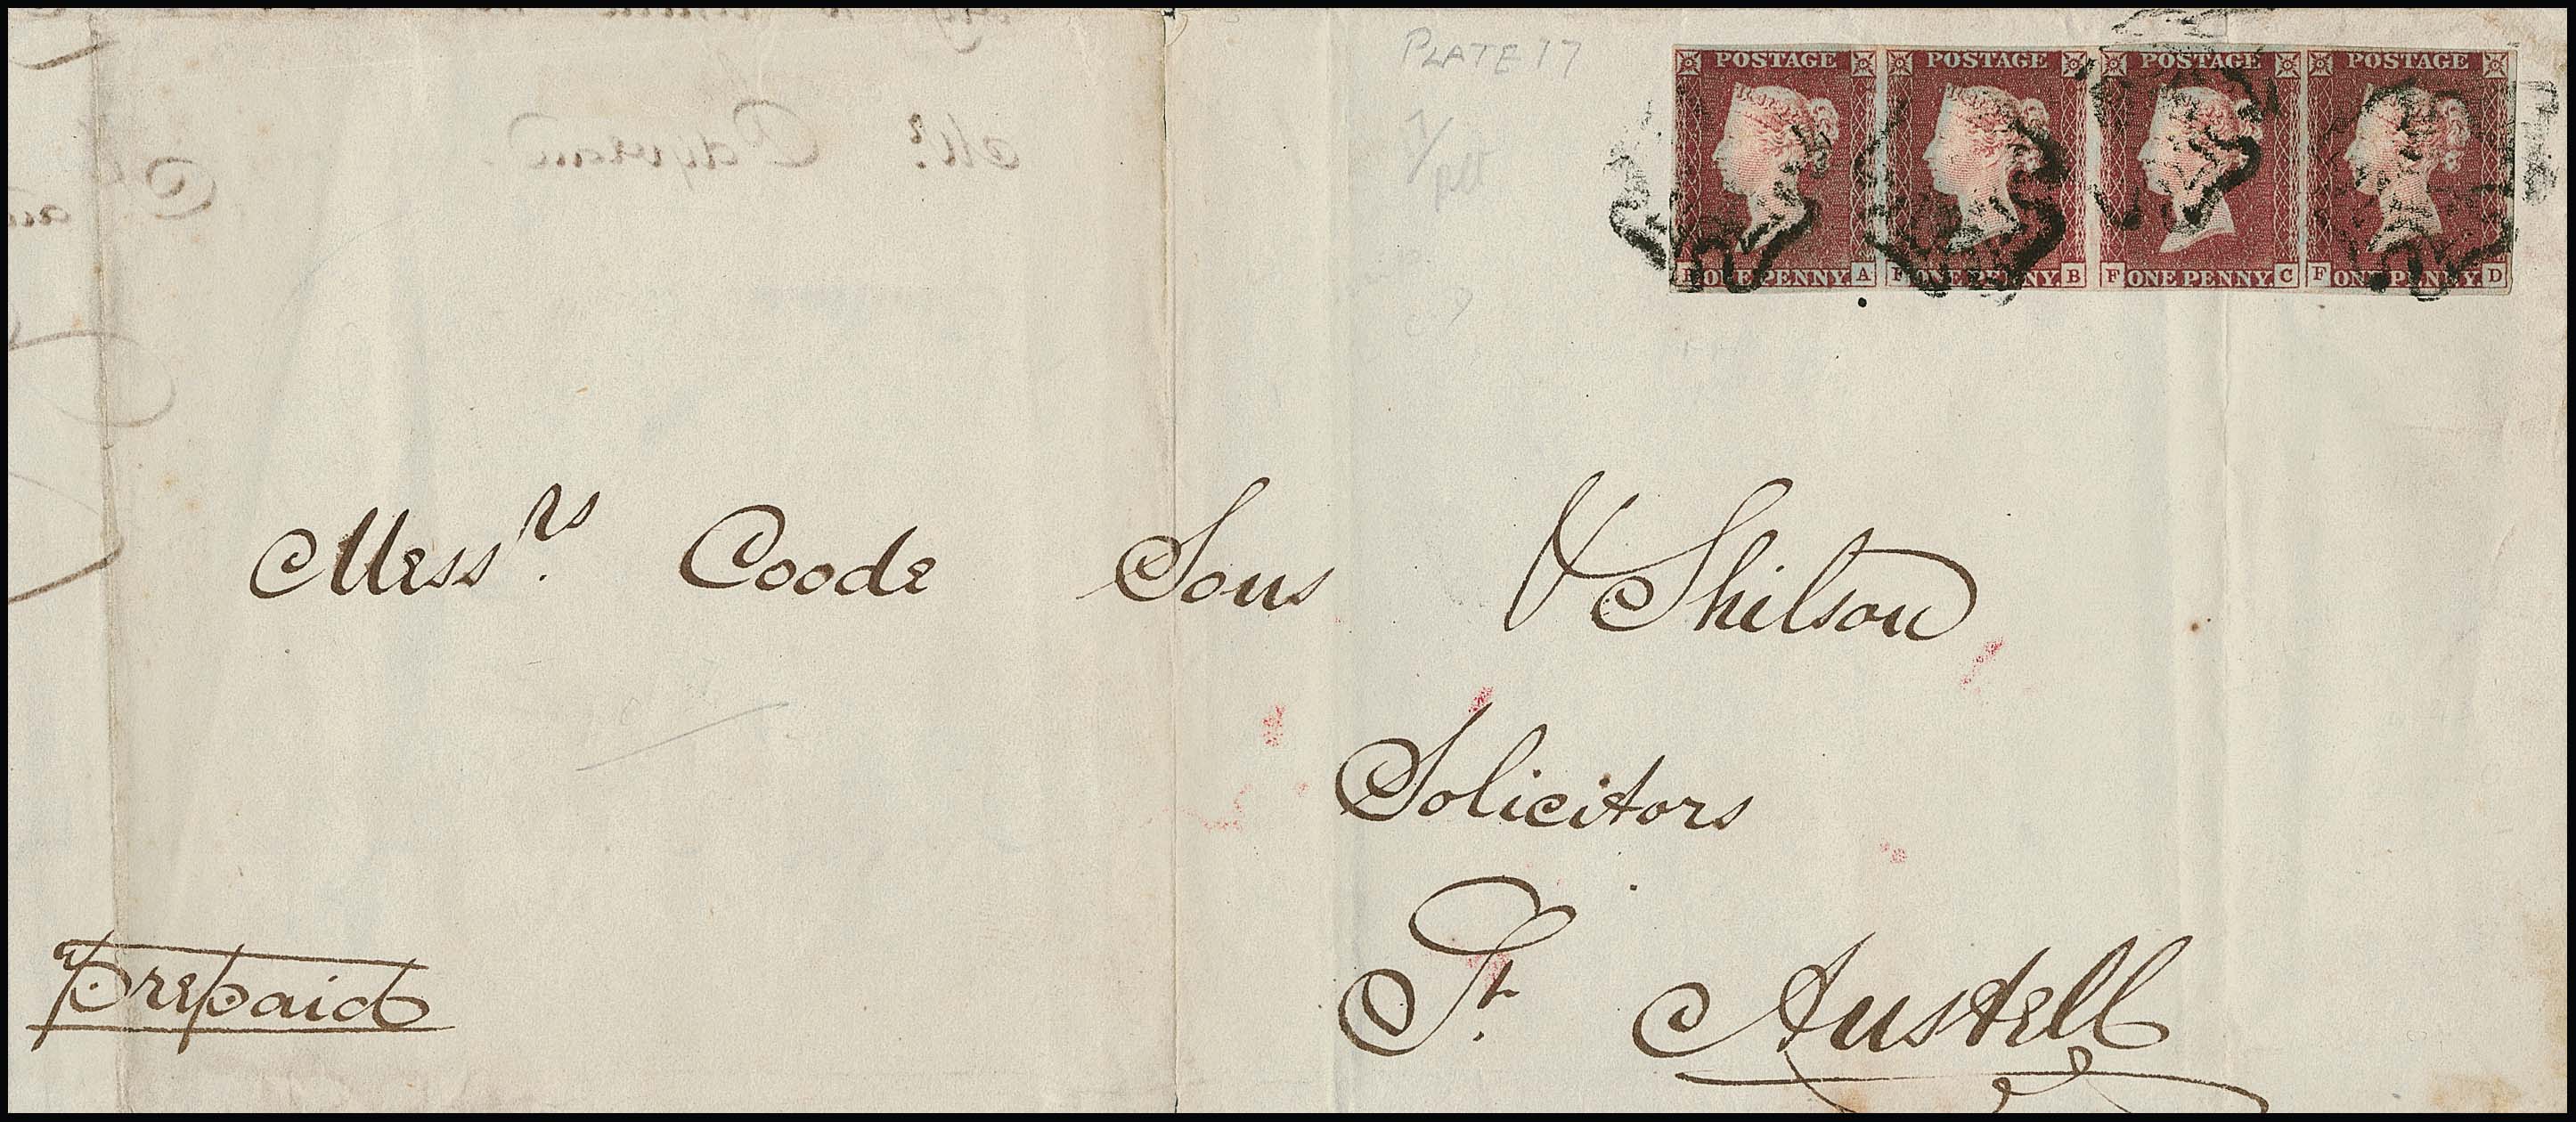 PLATE 17
POSTAGE POSTAGE POSTAGE POSTAGE
ONE PENNY. A F ONE PENNY. B F ONE PENNY. C F ONE PENNY. D
Messrs. Coode Sons & Shilson
Solicitors
St. Austell
prepaid